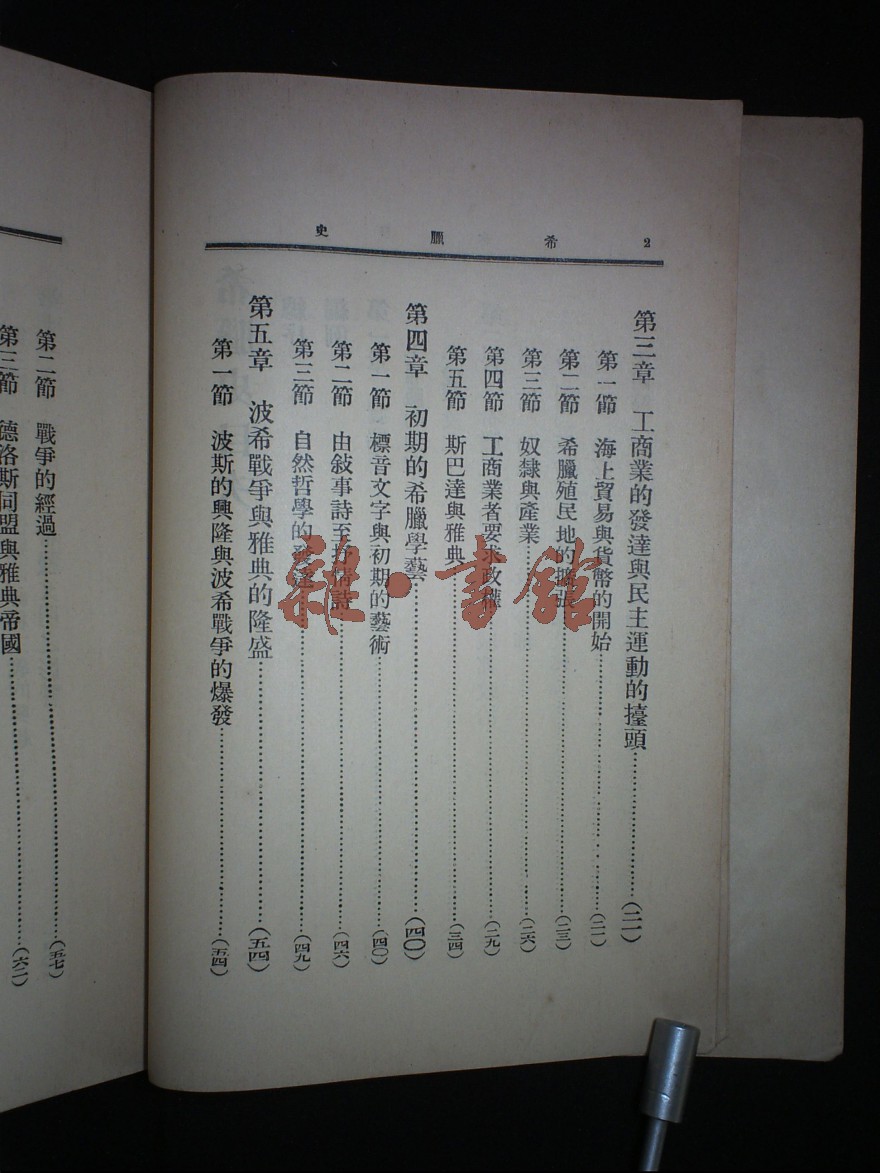 2 希臘史
第三章 工商業的發達與民主運動的擡頭……(二一)
第一節 海上貿易與貨幣的開始……(二一)
第二節 希臘殖民地的擴張……(二三)
第三節 奴隸與產業……(二六)
第四節 工商業者要求政權……(二九)
第五節 斯巴達與雅典……(三四)
第四章 初期的希臘學藝……(四〇)
第一節 標音文字與初期的藝術……(四〇)
第二節 由敍事詩至抒情詩……(四六)
第三節 自然哲學的發達……(四九)
第五章 波希戰爭與雅典的隆盛……(五四)
第一節 波斯的興隆與波希戰爭的爆發……(五四)
第二節 戰爭的經過……(五七)
第三節 德洛斯同盟與雅典帝國……(六二)
雜·書館